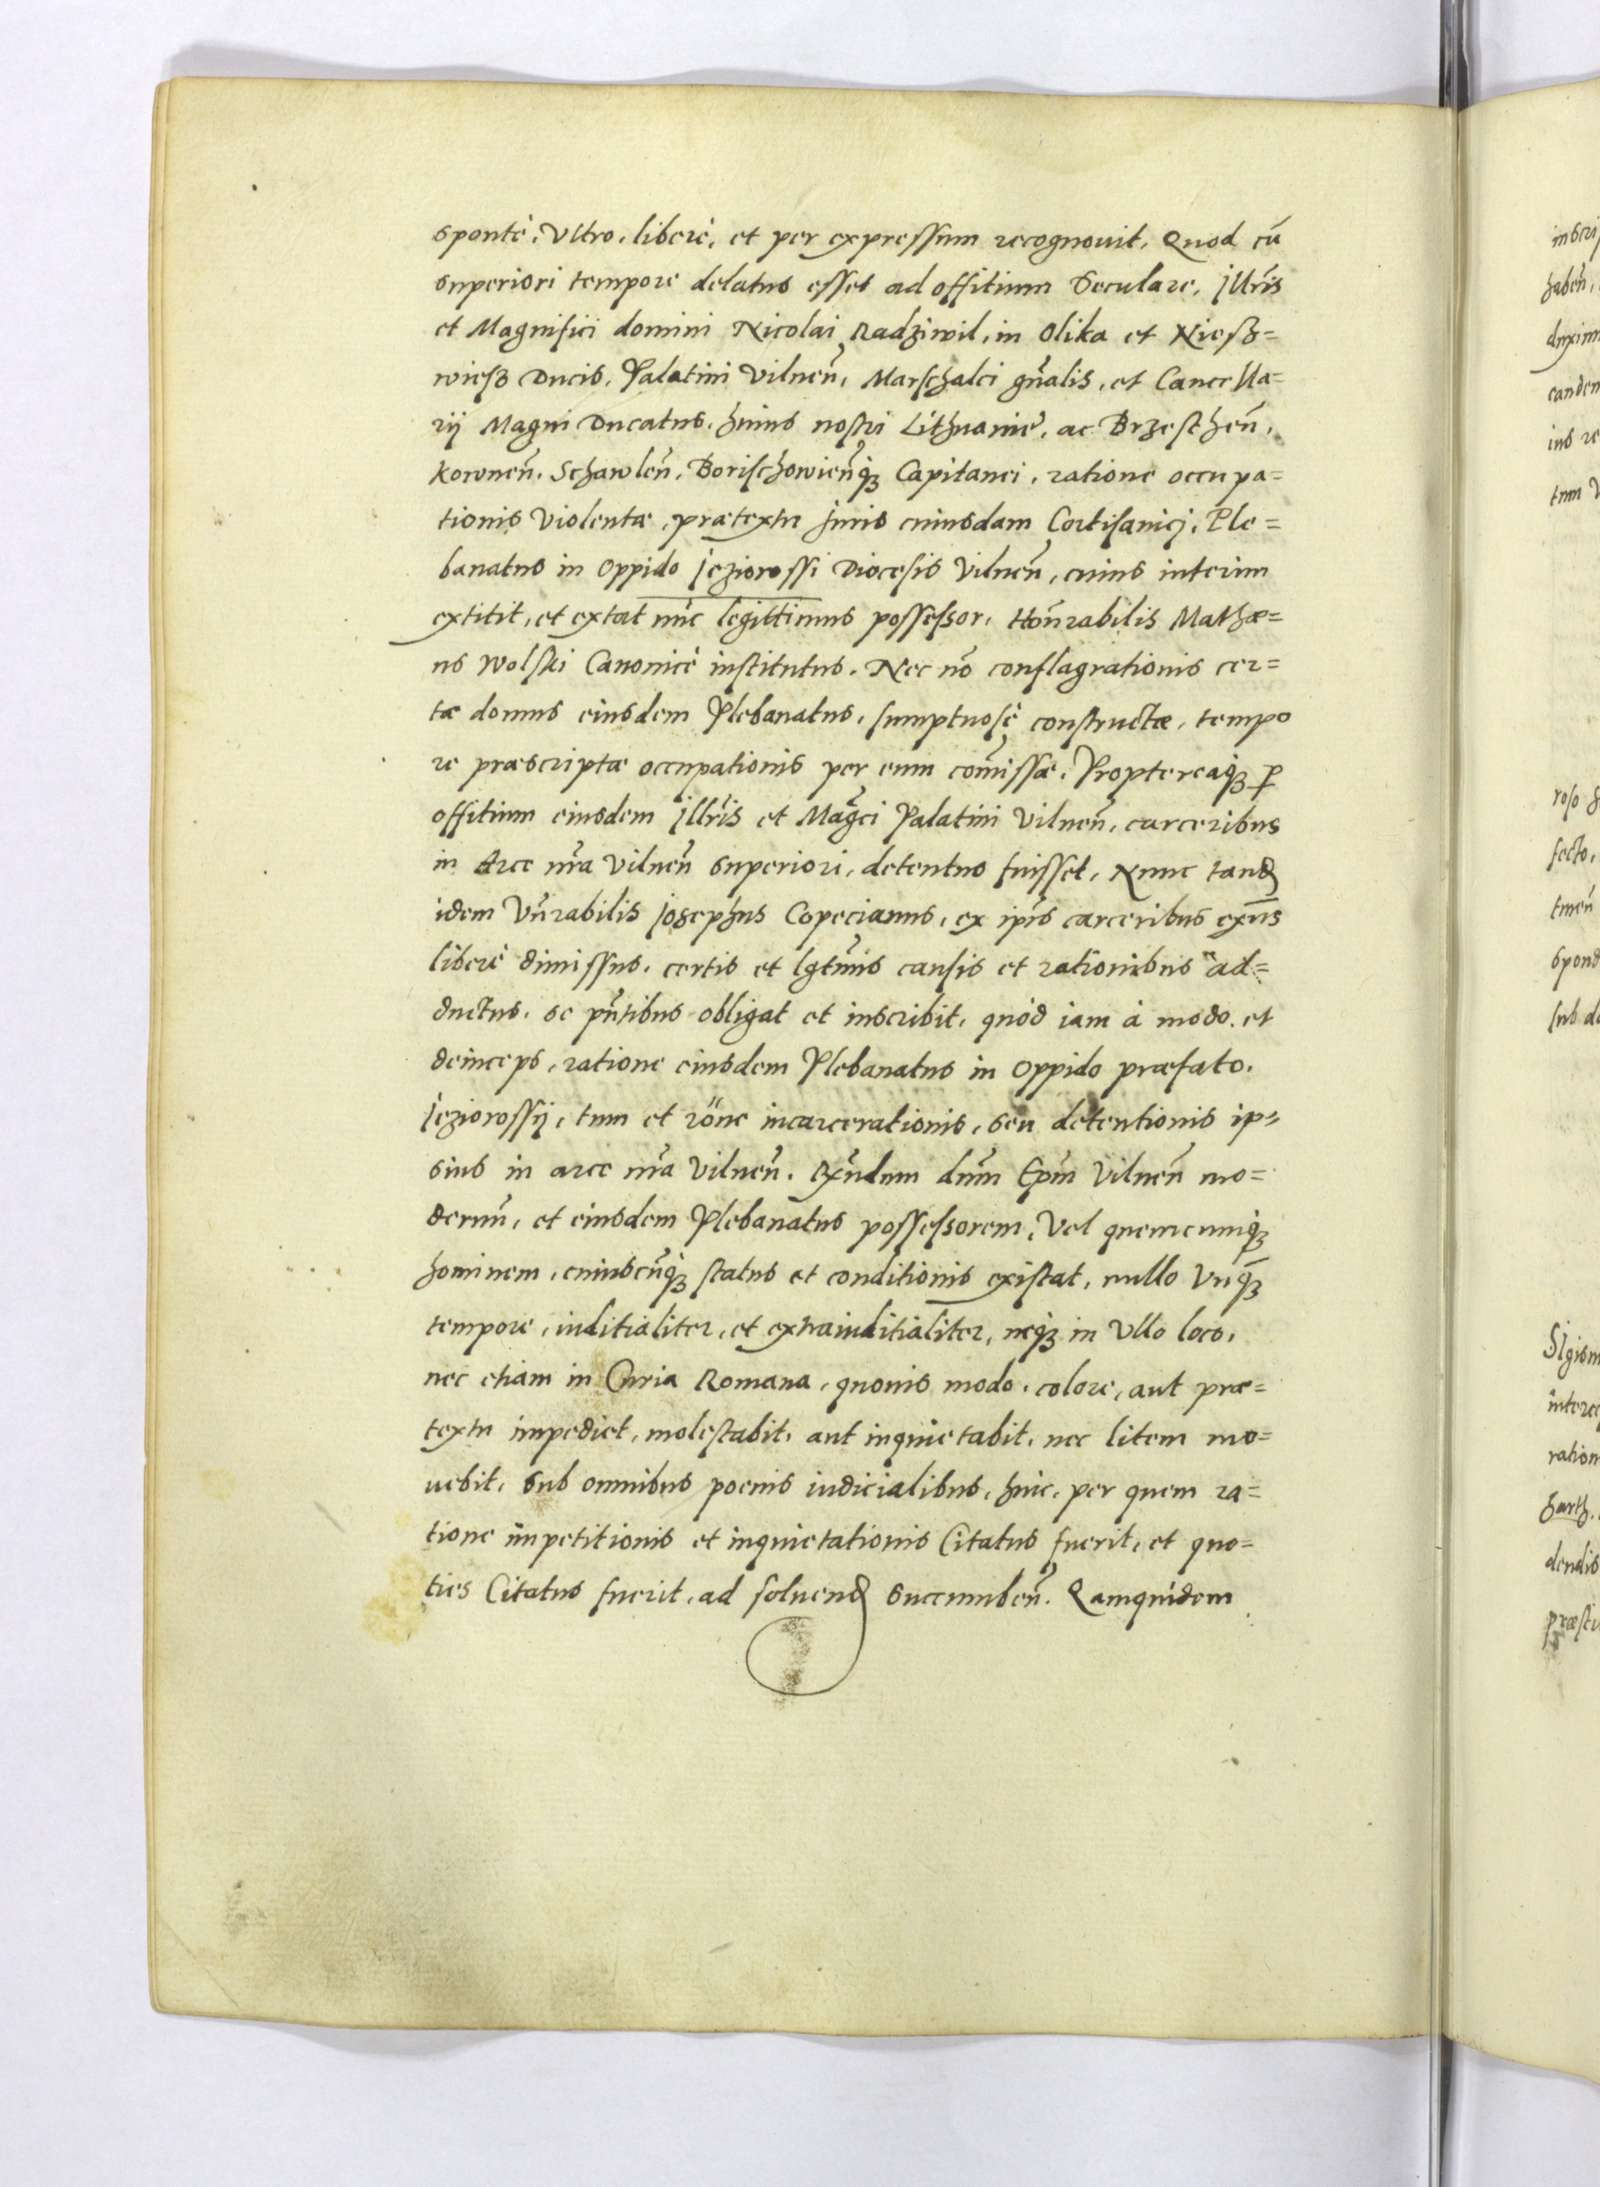 spontè, Vltro, liberè, et per expressum recognouit, Quod cū
superiori tempore delatus esset ad offitium Seculare, Illr̄is
et Magnifici domini Nicolai Radziwil, in Olika et Niesz=
wiesz Ducis, Palatini Vilnen̄, Marschalci gn̄alis, et Cancella=
rij Magni Ducatus, huius nostri Lithuanię, ac Brzesthen̄,
Kownen̄, Schawlen̄, Borischowien̄q₃ Capitanei, ratione occupa=
tionis Violentæ, prætextu Juris cuiusdam Cortisanici, Ple=
banatus in Oppido Jeziorossi Diocesis Vilnen̄, cuius interim
extitit, et extat nūc legittimus possessor, Hon̄rabilis Mathæ=
us Wolski Canonicè institutus. Nec nō conflagrationis cer=
tæ domus eiusdem Plebanatus, sumptuosè constructæ, tempo
re præscriptæ occupationis per eum com̄issæ, Proptereaq₃ ꝑ
offitium eiusdem Illr̄is et Mag̃ci Palatini Vilnen̄, carceribus
in Arce nr̄a Vilnen̄ superiori, detentus fuisset, Nunc tandꝫ
idem Vn̄rabilis Josephus Copecianus, ex ip̄is carceribus exn̄s
liberè dimissus, certis et lgt̄mis causis et rationibus ad=
ductus, se pn̄tibus obligat et inscribit, quòd iam à modo, et
deinceps, ratione eiusdem Plebanatus in Oppido præfato,
Jeziorossij, tum et rōne incarcerationis, seu detentionis ip=
sius in arce nr̄a Vilnen̄. Rx̄ndum dn̄m Ep̄m Vilnen̄ mo=
dernū, et eiusdem Plebanatus possessorem, Vel quemcumq₃
hominem, cuiuscūq₃ status et conditionis existat, nullo Vnq̄₃
tempore, iuditialiter, et extraiuditialiter, neq₃ in Vllo loco,
nec etiam in Curia Romana, quouis modo, colore, aut præ=
textu impediet, molestabit, aut inquietabit, nec litem mo=
uebit, sub omnibus poenis iudicialibus, huic, per quem ra=
tione impetitionis et inquietationis Citatus fuerit, et quo=
ties Citatus fuerit, ad soluendꝫ succumben̄. Qamquidem